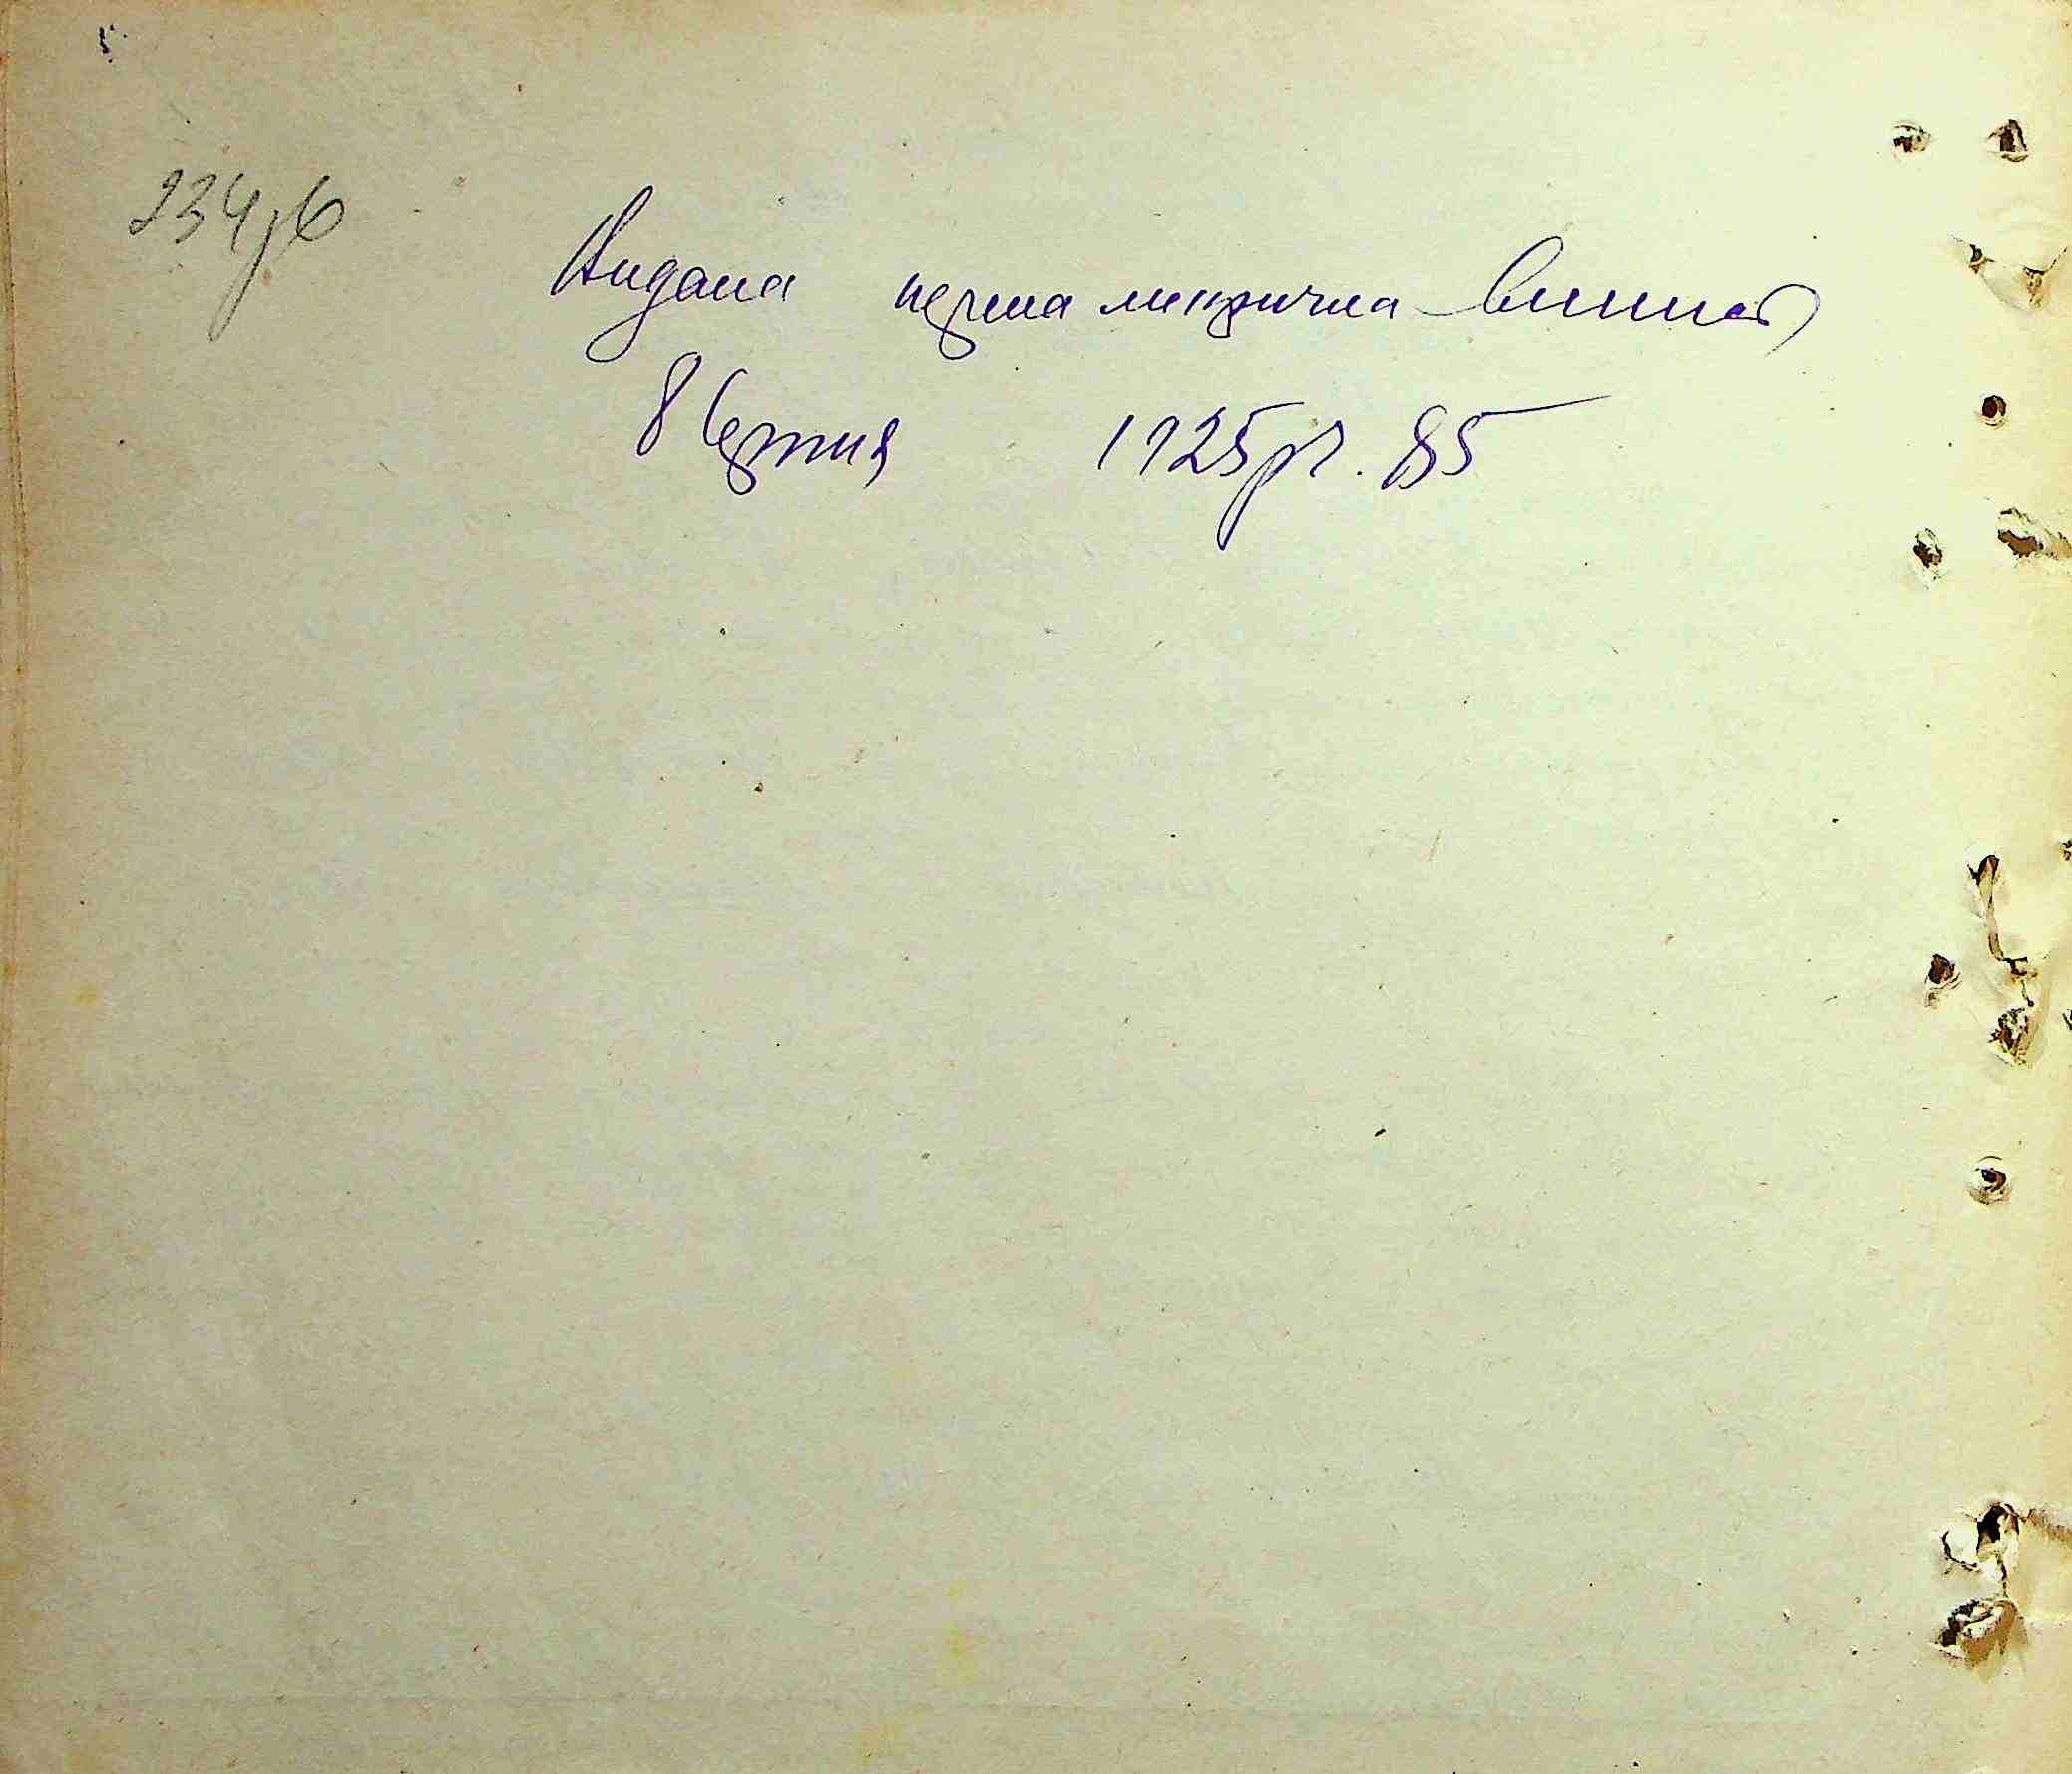 234зв
Видана перша метрична випись
8 серпня 1925 р. 85